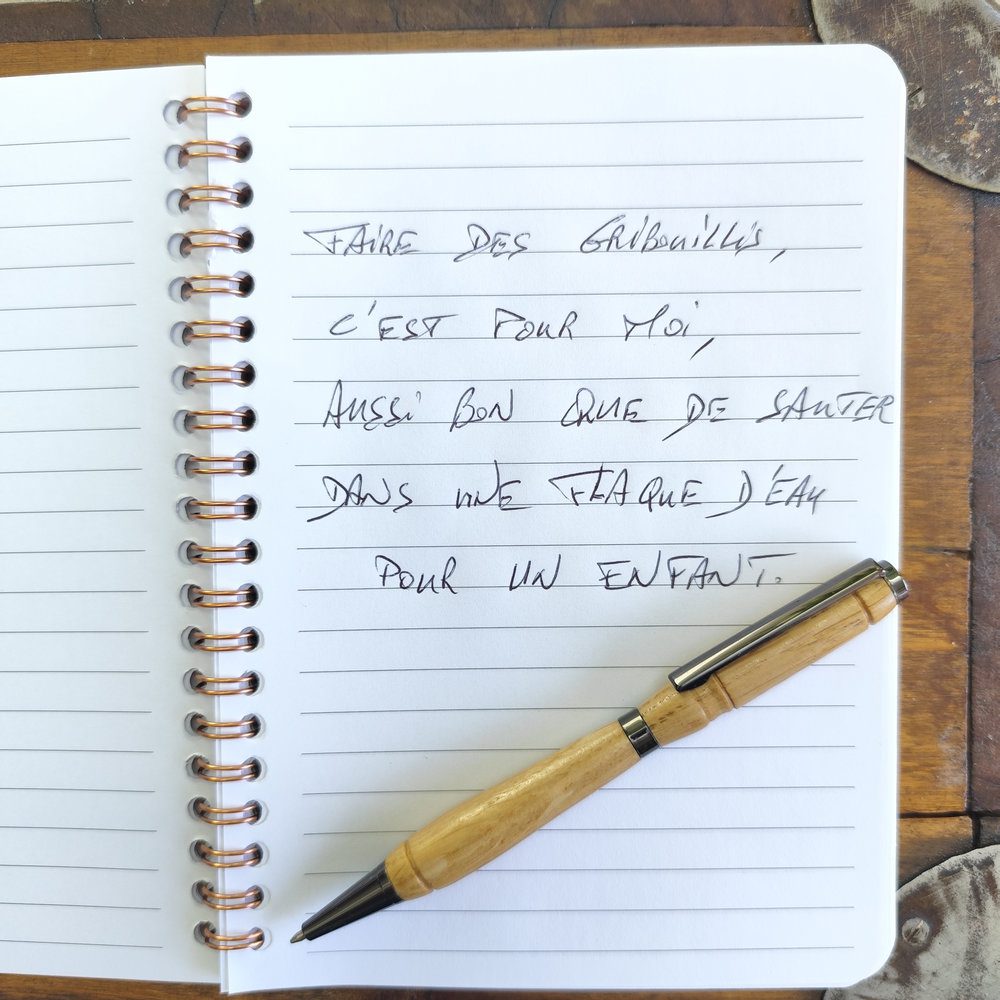 FAIRE DES GRIBOUILLIS,
C'EST POUR MOI,
AUSSI BON QUE DE SAUTER
DANS UNE FLAQUE D'EAU
POUR UN ENFANT.